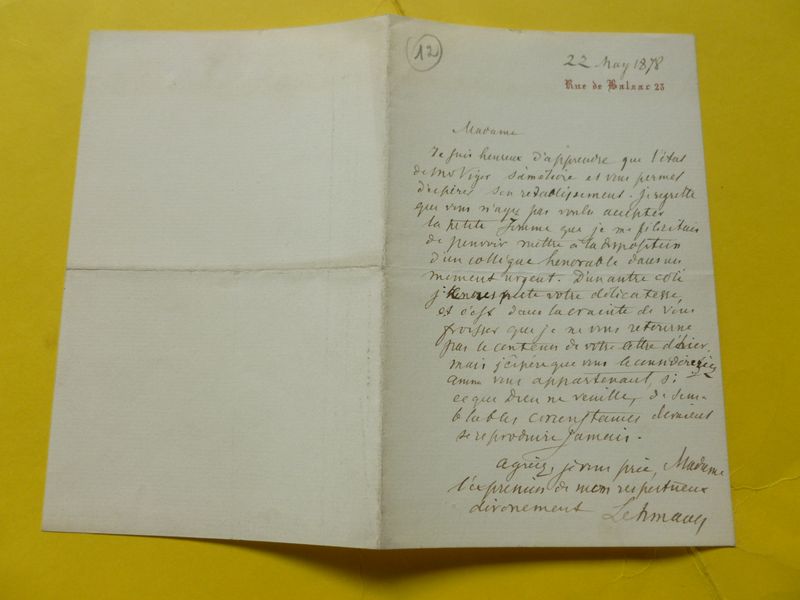 12
22 May 1878
Rue de Balzac 23
Madame
Je suis heureux d'apprendre que l'état
de Mr Viger s'améliore et vous permet
d'espérer son rétablissement. Je regrette
que vous n'ayez pas voulu accepter
la petite somme que je me félicitais
de pouvoir mettre à la disposition
d'un collègue honorable dans un
moment urgent. D'un autre coté
je respecte votre délicatesse,
et c'est dans la crainte de vous
froisser que je ne vous retourne
pas le contenu de votre lettre d'hier.
mais j'espère que vous le considérerez
comme vous appartenant, si
ce que Dieu ne veuille, de sem-
blables circonstances devaient
se reproduire jamais.
Agréez, je vous prie, Madame
l'expression de mon respectueux
dévouement Lehmann